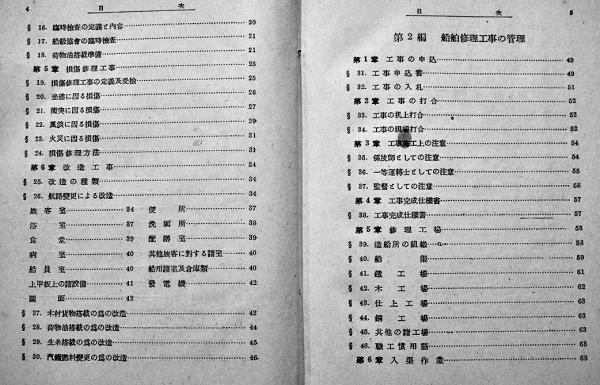 4 目 次
§ 16. 臨時検査の定義と内容 20
§ 17. 船級協会の臨時検査 21
§ 18. 荷物油搭載準備 21
第5章 損傷修理工事 25
§ 19. 損傷修理工事の定義及受検 25
§ 20. 坐礁に因る損傷 26
§ 21. 衝突に因る損傷 27
§ 22. 風浪に因る損傷 29
§ 23. 火災に因る損傷 31
§ 24. 損傷修理方法 31
第6章 改造工事 34
§ 25. 改造の種類 34
§ 26. 航路變更による改造 34
旅客室 34 便所 37
浴室 37 洗面所 38
食堂 39 配膳室 39
病室 40 其他旅客に對する諸室 40
船員室 40 船用諸室及倉庫類 40
上甲板上の諸設備 41 發電機 42
圖面 42
§ 27. 木材貨物搭載の爲の改造 42
§ 28. 荷物油搭載の爲の改造 44
§ 29. 生糸搭載の爲の改造 45
§ 30. 汽罐燃料變更の爲の改造 46
目 次 5
第2編 船舶修理工事の管理
第1章 工事の申込 49
§ 31. 工事申込書 49
§ 32. 工事の入札 51
第2章 工事の打合 52
§ 33. 工事の机上打合 52
§ 34. 工事の現場打合 52
第3章 工事施工上の注意 54
§ 35. 保技師としての注意 54
§ 36. 一等運轉士としての注意 55
§ 37. 監督としての注意 56
第4章 工事完成仕様書 57
§ 38. 工事完成仕様書 57
第5章 修理工場 58
§ 39. 造船所の組織 58
§ 40. 船渠 59
§ 41. 鐵工場 61
§ 42. 木工場 62
§ 43. 仕上工場 63
§ 44. 銅工場 63
§ 45. 其他の諸工場 63
§ 46. 職工慣用語 63
第6章 入渠作業 63